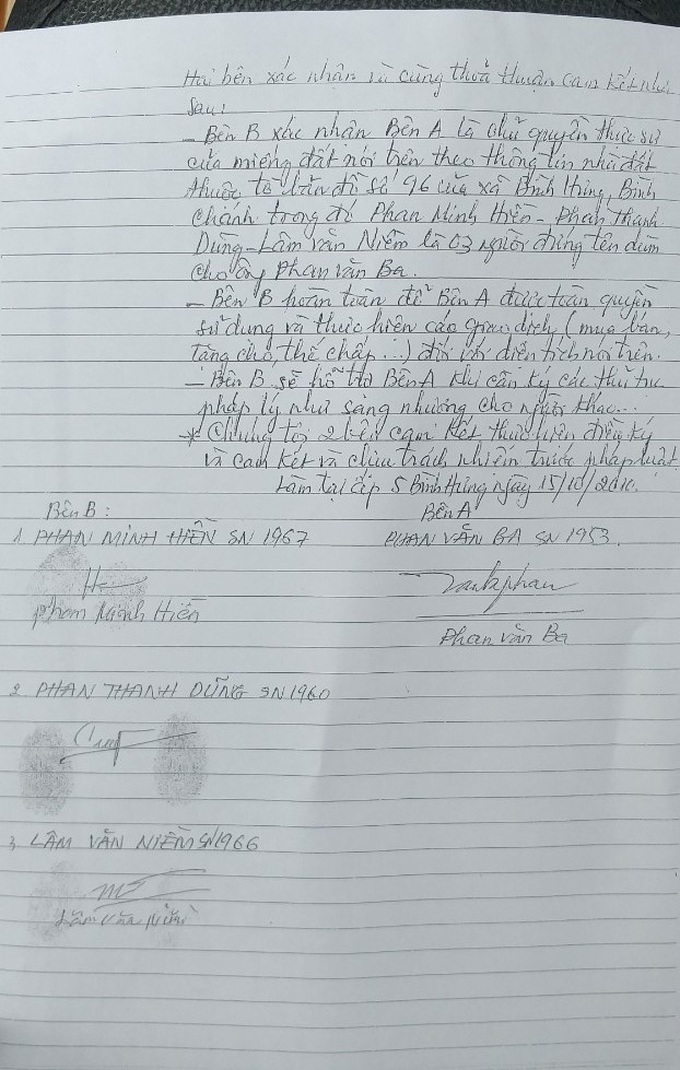 Hai bên xác nhận và cùng thoả thuận cam kết như
sau:
- Bên B xác nhận Bên A là chủ quyền thực sự
của miếng đất nói trên theo thông tin nhà đất
thuộc tờ bản đồ số 96 của xã Bình Hưng, Bình
Chánh trong đó Phan Minh Hiền - Phan Thanh
Dũng - Lâm Văn Niềm là 03 người đứng tên dùm
cho ông Phan Văn Ba.
- Bên B hoàn toàn để Bên A được toàn quyền
sử dụng và thực hiện các giao dịch (mua bán,
tặng cho, thế chấp...) đối với diện tích nói trên.
- Bên B sẽ hỗ trợ Bên A khi cần ký các thủ tục
pháp lý như sang nhượng cho người khác...
* Chúng tôi 2 bên cam kết thực hiện điều ký
và cam kết và chịu trách nhiệm trước pháp luật.
Làm tại ấp 5 Bình Hưng ngày 15/10/2010.
Bên B: Bên A
1. PHAN MINH HIỀN SN 1967 PHAN VĂN BA SN 1953.
Phan Minh Hiền
Phan Văn Ba
2. PHAN THANH DŨNG SN 1960
3. LÂM VĂN NIỀM SN 1966
Lâm Văn Niềm